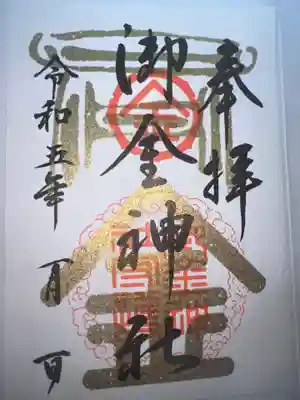 奉拝
御金神社
令和五年 一月 一日
金